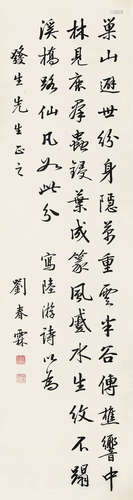 巢山避世紛身隱萬重雲半谷傳樵響中
林見鹿羣蟲鏤葉成篆風蹙水生紋不蹋
溪橋路仙凡如此分 寫陸游詩以為
發生先生正之
劉春霖